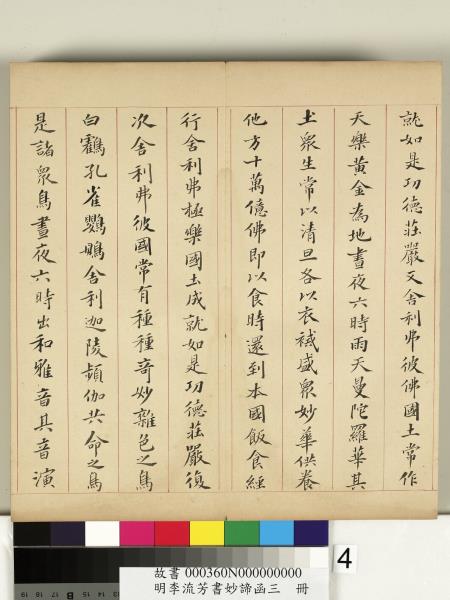 就如是功德莊嚴又舍利弗彼佛國土常作
天樂黃金為地晝夜六時雨天曼陀羅華其
土眾生常以清旦各以衣祴盛眾妙華供養
他方十萬億佛即以食時還到本國飯食經
行舍利弗極樂國土成就如是功德莊嚴復
次舍利弗彼國常有種種奇妙雜色之鳥
白鶴孔雀鸚鵡舍利迦陵頻伽共命之鳥
是諸眾鳥晝夜六時出和雅音其音演
4
故書 000360N000000000
明李流芳書妙諦函三 冊
B
15
16
17
18
19